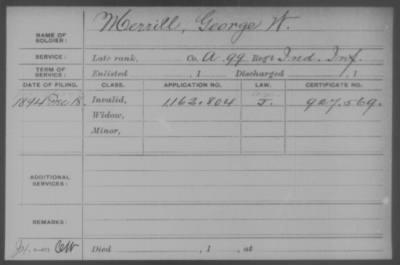 NAME OF SOLDIER: Merrill, George W.
SERVICE: Late rank, Co. A. 99 Reg't Ind. Inf.
TERM OF SERVICE: Enlisted , 1 Discharged , 1
DATE OF FILING. CLASS. APPLICATION NO. LAW. CERTIFICATE NO.
1894 Dec 18. Invalid, 1162.804 J. 927.569.
Widow,
Minor,
ADDITIONAL SERVICES:
REMARKS:
Died , 1 , at